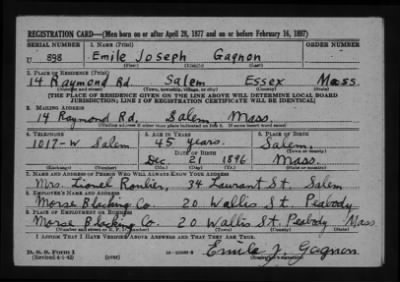 REGISTRATION CARD—(Men born on or after April 28, 1877 and on or before February 16, 1897)
SERIAL NUMBER 1. NAME (Print) ORDER NUMBER
U 898 Emile Joseph Gagnon
(First) (Middle) (Last)
2. PLACE OF RESIDENCE (Print)
14 Raymond Rd. Salem Essex Mass.
(Number and street) (Town, township, village, or city) (County) (State)
[THE PLACE OF RESIDENCE GIVEN ON THE LINE ABOVE WILL DETERMINE LOCAL BOARD
JURISDICTION; LINE 2 OF REGISTRATION CERTIFICATE WILL BE IDENTICAL]
3. MAILING ADDRESS
14 Raymond Rd, Salem Mass.
[Mailing address if other than place indicated on line 2. If same insert word same]
4. TELEPHONE 5. AGE IN YEARS 6. PLACE OF BIRTH
1017-W Salem 45 years. Salem.
DATE OF BIRTH (Town or county)
Dec. 21 1896 Mass.
(Exchange) (Number) (Mo.) (Day) (Yr.) (State or country)
7. NAME AND ADDRESS OF PERSON WHO WILL ALWAYS KNOW YOUR ADDRESS
Mrs. Lionel 34 St. Salem
8. EMPLOYER'S NAME AND ADDRESS
Morse Blacking Co. 20 Wallis St. Peabody
9. PLACE OF EMPLOYMENT OR BUSINESS
Morse Blacking Co. 20 Wallis St, Peabody Mass
(Number and street or R. F. D. number) (Town) (County) (State)
I AFFIRM THAT I HAVE VERIFIED ABOVE ANSWERS AND THAT THEY ARE TRUE.
D. S. S. Form 1
(Revised 4-1-42) (over) Emile J. Gagnon
(Registrant's signature)